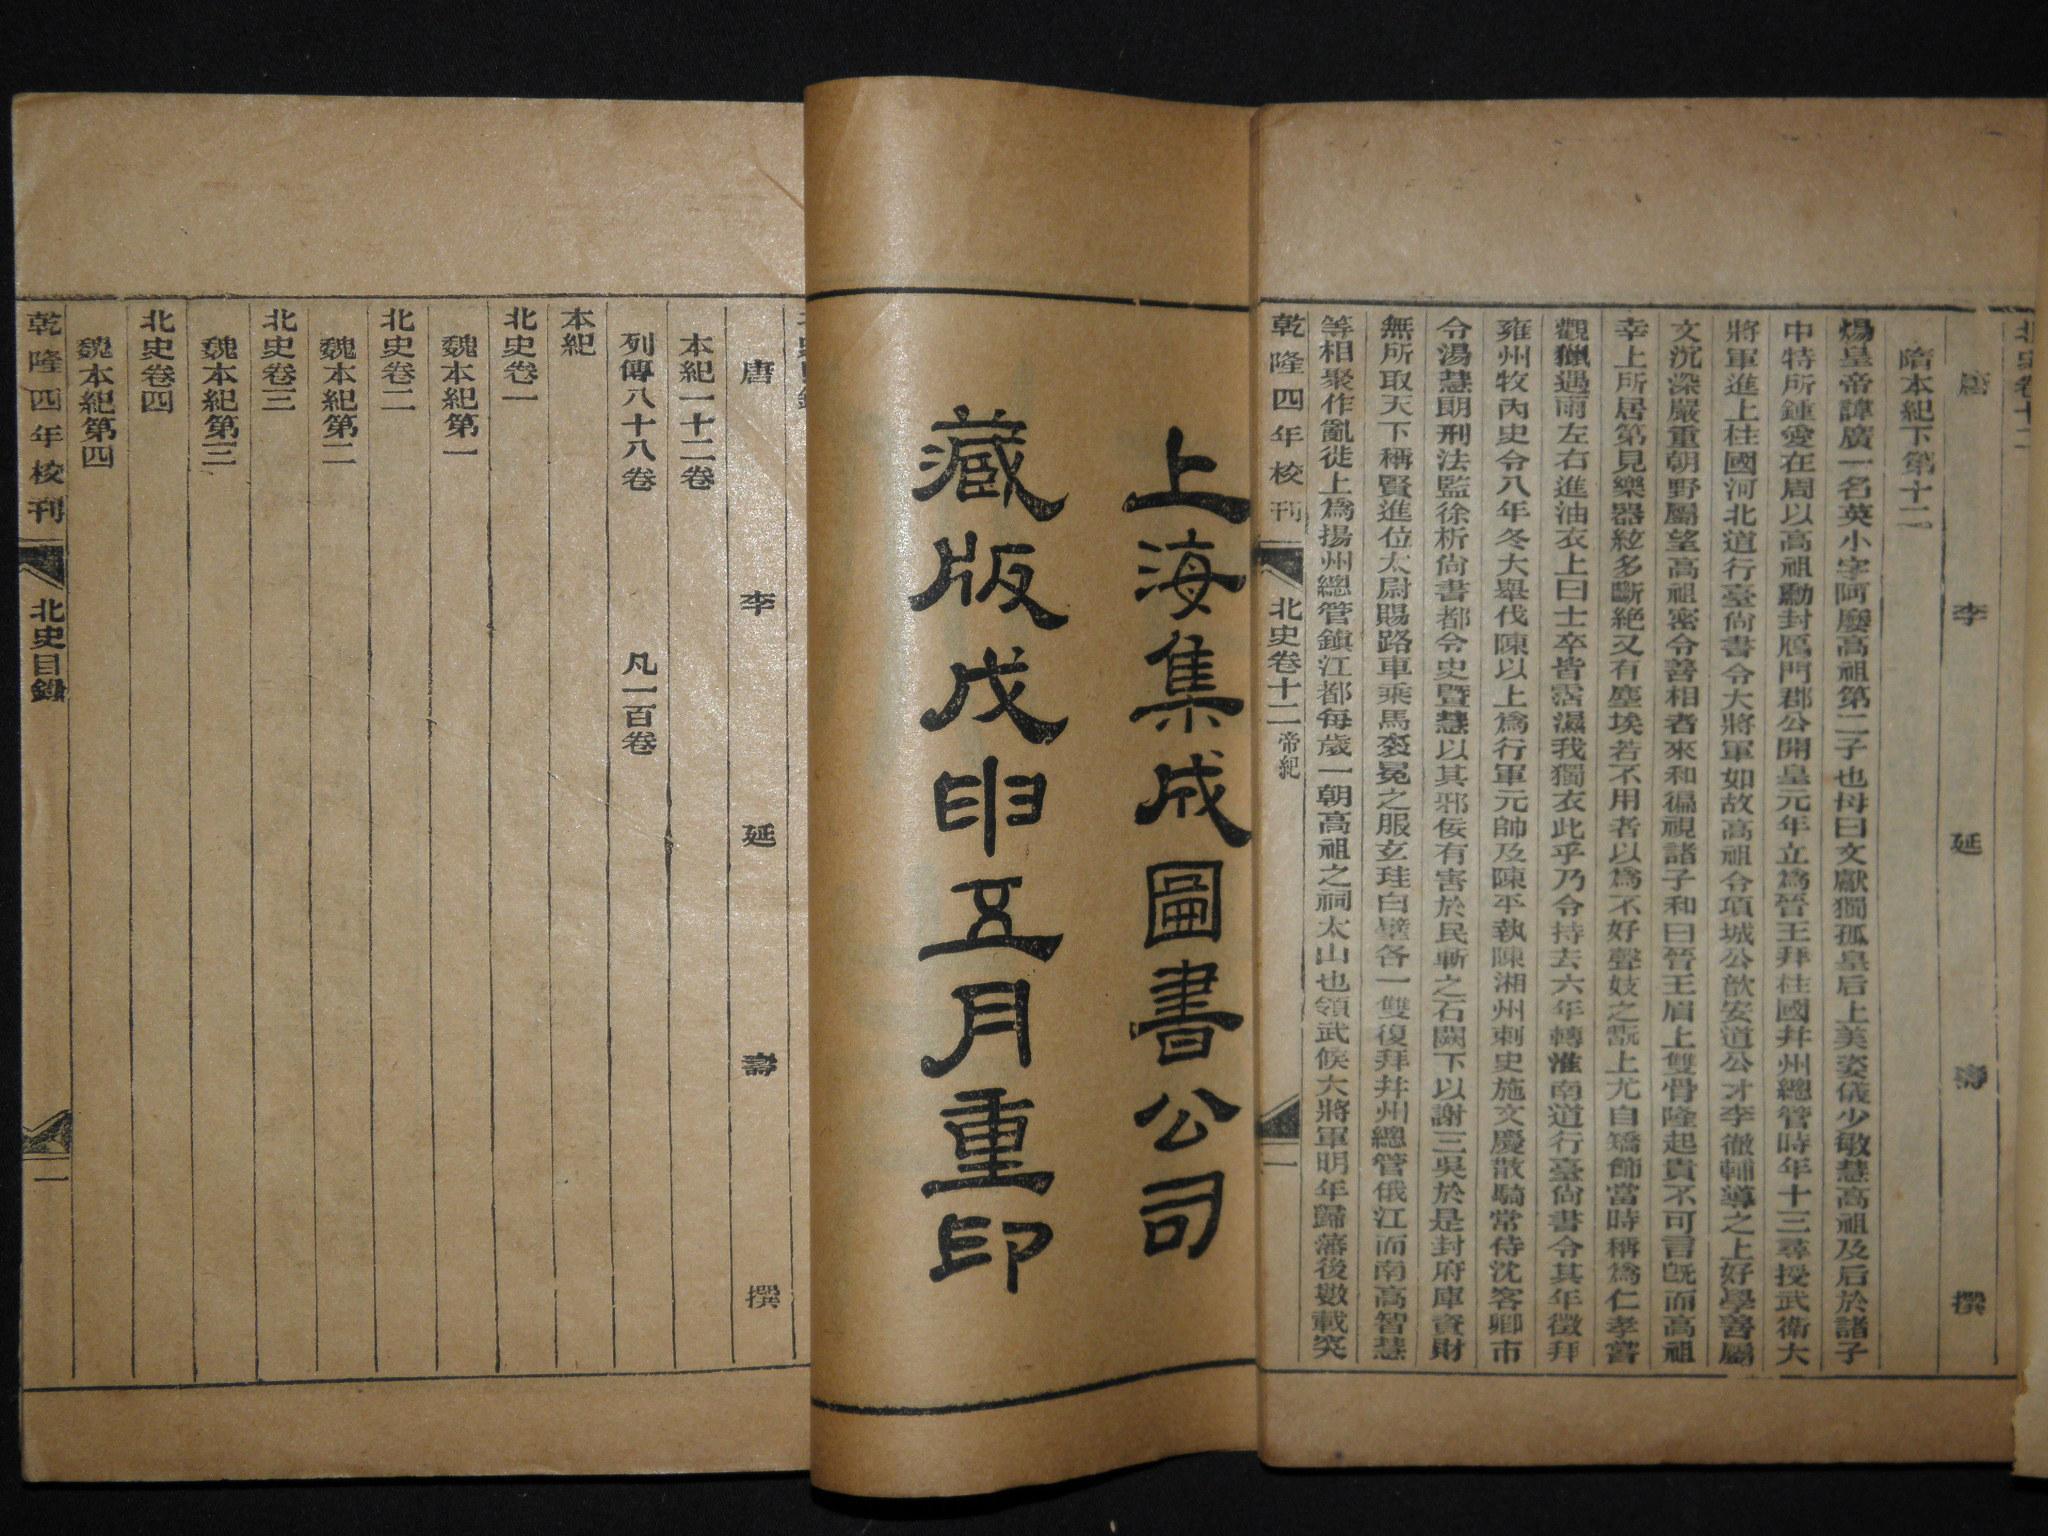 北史卷十二
唐 李 延 壽 撰
隋本紀下第十二
煬皇帝諱廣一名英小字阿㦄高祖第二子也母曰文獻獨孤皇后上美姿儀少敏慧高祖及后於諸子
中特所鍾愛在周以高祖勳封鴈門郡公開皇元年立為晉王拜柱國并州總管時年十三尋授武衛大
將軍進上柱國河北道行臺尙書令大將軍如故高祖令項城公歆安道公才李徹輔導之上好學善屬
文沉深嚴重朝野屬望高祖密令善相者來和徧視諸子和曰晉王眉上雙骨隆起貴不可言旣而高祖
幸上所居第見樂器絃多斷絕又有塵埃若不用者以為不好聲妓之翫上尤自矯飾當時稱為仁孝嘗
觀獵遇雨左右進油衣上曰士卒皆霑濕我獨衣此乎乃令持去六年轉淮南道行臺尙書令其年徵拜
雍州牧內史令八年冬大舉伐陳以上為行軍元帥及陳平執陳湘州刺史施文慶散騎常侍沈客卿市
令湯慧朗刑法監徐析尙書都令史暨慧以其邪佞有害於民斬之石闕下以謝三吳於是封府庫資財
無所取天下稱賢進位太尉賜路車乘馬袞冕之服玄珪白璧各一雙復拜并州總管俄江而南高智慧
等相聚作亂徙上為揚州總管鎮江都每歲一朝高祖之祠太山也領武候大將軍明年歸藩後數載突
乾隆四年校刊
北史卷十二 帝紀
一
上海集成圖書公司
藏版戊申五月重印
北史目錄
唐 李 延 壽 撰
本紀一十二卷
列傳八十八卷 凡一百卷
本紀
北史卷一
魏本紀第一
北史卷二
魏本紀第二
北史卷三
魏本紀第三
北史卷四
魏本紀第四
乾隆四年校刊
北史目錄
一